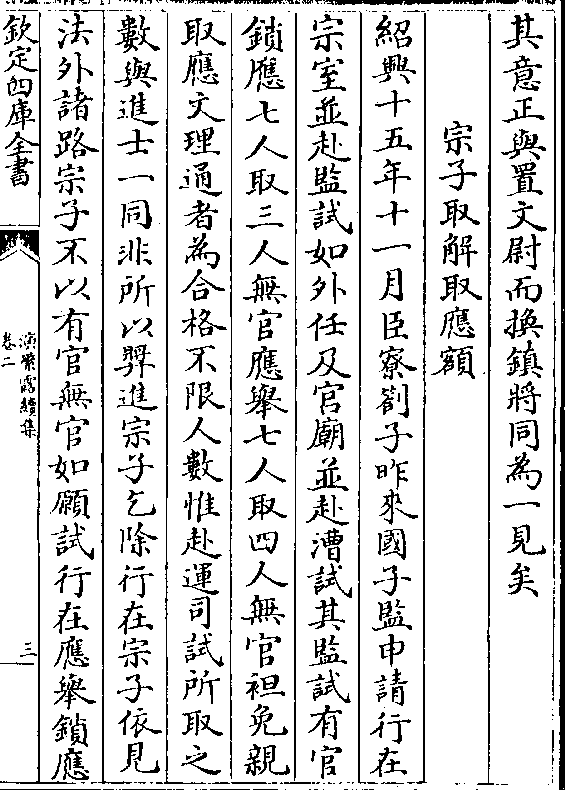 其意正與置文尉而換鎮將同為一見矣
宗子取解取應額
紹興十五年十一月臣寮劄子昨來國子監申請行在
宗室並赴監試如外任及官廟並赴漕試其監試有官
鎖應七人取三人無官應舉七人取四人無官袒免親
取應文理通者為合格不限人數惟赴運司試所取之
數與進士一同非所以羿進宗子乞除行在宗子依見
法外諸路宗子不以有官無官如願試行在應舉鎖應
欽定四庫全書
演繁露續集
卷二
三